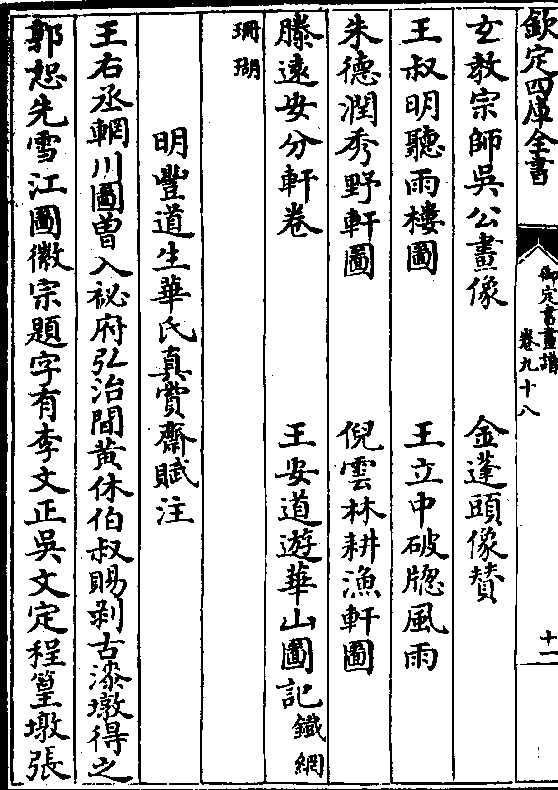 欽定四庫全書
御定書畫譜
卷九十八
十一
玄教宗師吳公畫像　金蓬頭像贊
王叔明聽雨樓圖　王立中破牕風雨
朱德潤秀野軒圖　倪雲林耕漁軒圖
滕遠安分軒卷　王安道遊華山圖記鐵網
珊瑚
明豐道生華氏真賞齋賦注
王右丞輞川圖曾入祕府弘治間黃休伯叔賜剥古漆墩得之
郭恕先雪江圖徽宗題字有李文正吳文定程篁墩張